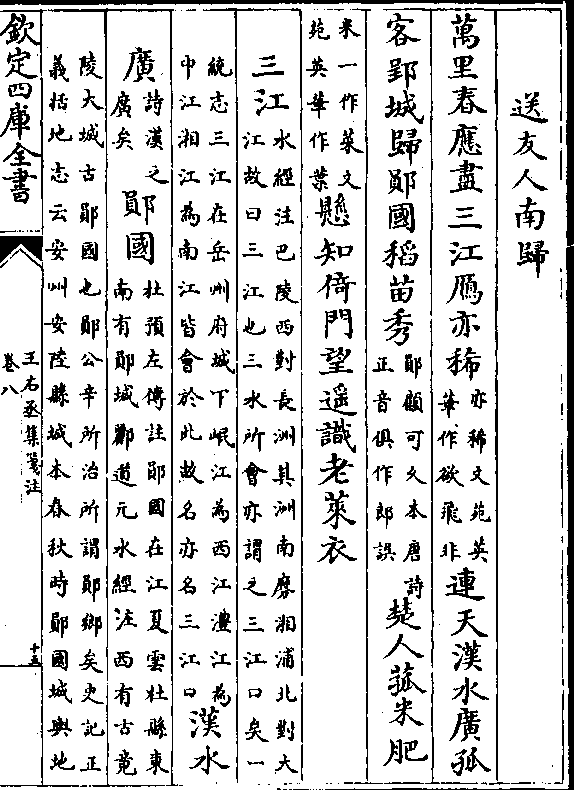 送友人南歸
萬里春應盡三江鴈亦稀
亦稀文苑英
華作欲飛非
連天漢水廣孤
客郢城歸鄖國稻苗秀
鄖顧可久本唐詩
正音俱作郎誤
楚人菰米肥
米一作菜文
苑英華作葉
懸知倚門望遥識老萊衣
三江
水經注巴陵西對長洲其洲南磨湘浦北對大
江故曰三江也三水所會亦謂之三江口矣一
統志三江在岳州府城下岷江為西江澧江為
中江湘江為南江皆會於此故名亦名三江口
漢水
廣
詩漢之
廣矣
鄖國
杜預左傳註鄖國在江夏雲杜縣東
南有鄖城酈道元水經注西有古竟
陵大城古鄖國也鄖公辛所治所謂鄖鄉矣史記正
義括地志云安州安陸縣城本春秋時鄖國城輿地
欽定四庫全書
王右丞集箋注
卷八
十五